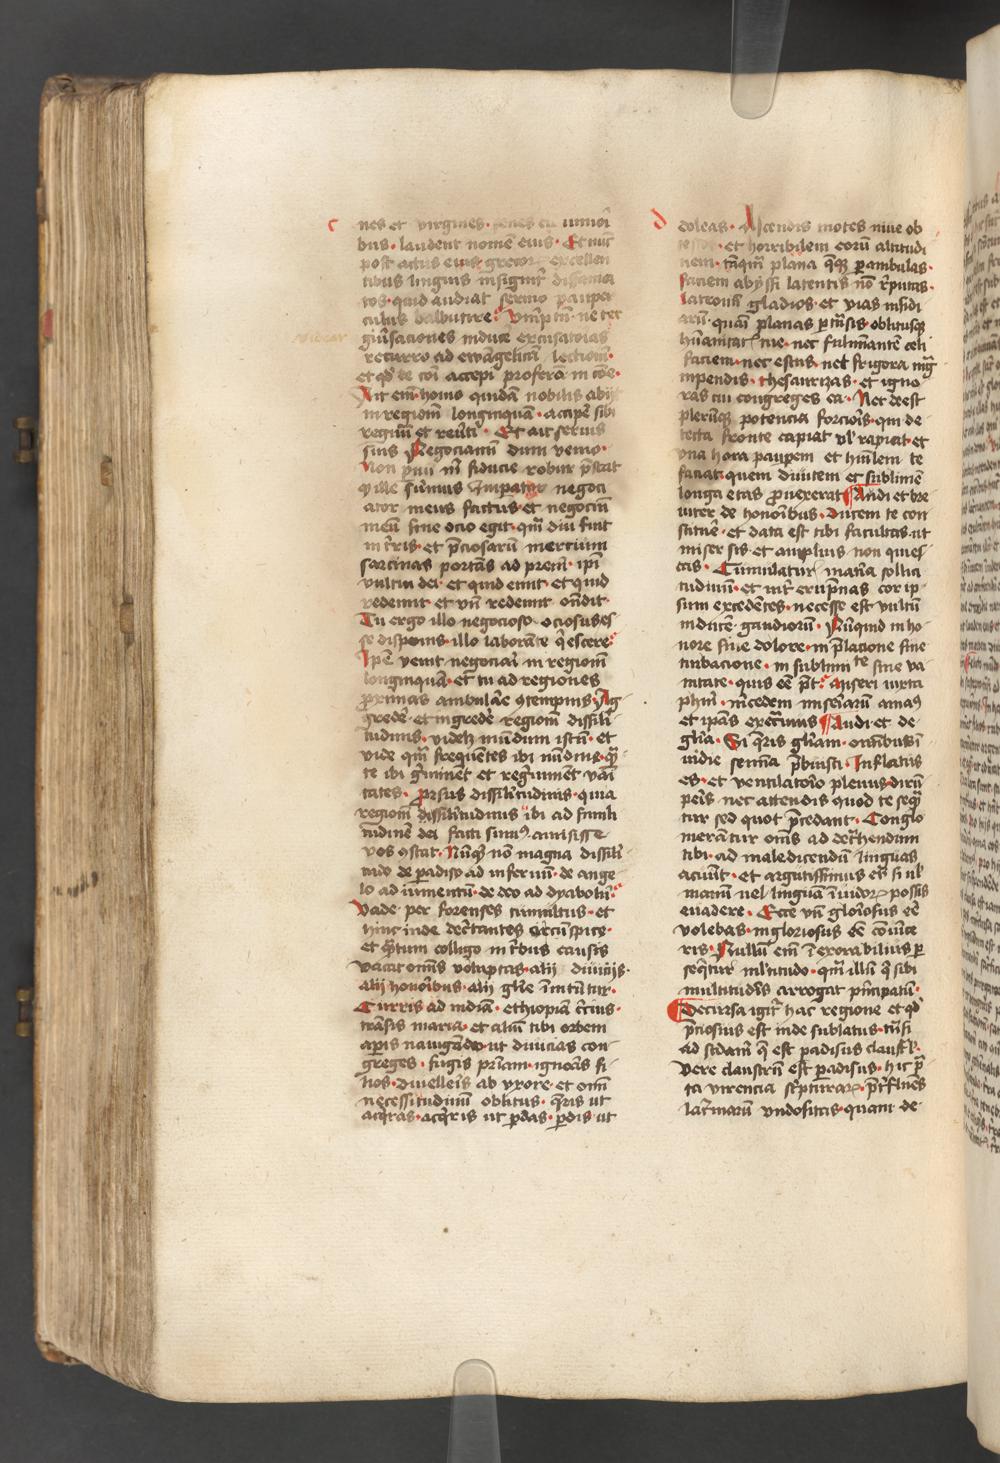 c
nes et virgines · senes cu iuniori
bus · laudent nomē eius · Et nūc
post actus eius
tibus linguis insignit̄
tos · quid audiat sermo paupe
culus balbutire
giūsaciones induce excusatoias
recurro ad ewāgelicā lectionē ·
et qd̄ te coī accepi proferā in cōe ·
Ait em̄ · homo quidā nobilis abijt
in regionē longinquā · accipē sibi
regnū et reūti · Et ait seruis
suis Negociamī dum venio ·
Non pͣuū m̄ fiducie robur p̄stat
qͥ ille sūmus Impator negoci
ator meus factus et negociū
meū sine ocio egit · qm̄ diu fuit
in tr̄is · et p̄ciosarū mercium
sarcinas portās ad prem̄ · ipī
vultui dei · et quid emit · et quid
redemit · et vn̄ redemit · on̄dit ·
Tu ergo illo negocioso · ociosus es
se disponis · illo laborāte qͥescere
Ipē venit negociaī in regionē
longinquā · et tu ad regiones
p̄ximas ambulare ꝯtempnis · Ag
gredē · et ingredē regionē dissili
tudinis · videlꝫ mūdum istū · et
vide qm̄ frequētes ibi nūdine · qͣ
te ibi gͥminēt et regͥminēt vāi
tates · prorsus dissilitudinis · quia
regionē dissilitudinis ibi ad simili
tudinē dei facti sumꝰ · amisisse
vos ꝯstat · Nūqͥ nō magna dissili
tudo de padiso ad infernū · de ange
lo ad iumentū · de deo ad dyabolū
Vade per forenses tumultus · et
hinc inde dec̄tantes circūspice ·
et qͣtum colligo in tr̄bus causis
vacat om̄is voluptas · alij diuicijs ·
alij honoribus · alij gl̄ie īnitūtur ·
Curris ad indiā · ethiopiā cīius ·
trāsis maria · et aliū tibi orbem
apis nauigādo · ut diuicias con
greges · fugis pr̄iam · ignoras fi
lios · diuelleis ab vxore · et omī
necessitudinū oblitus · qͥris ut
acqͥras · acqͥris ut pdas · pdis ut
d
doleas · Ascendis mōtes niue ob
et horribilem eorū altitudi
nem · tāqm̄ plana qͥqꝫ pambulas ·
faciem abyssi latentis nō r̄putas ·
Latronū gladios · et vias insidi
arū · quasi planas ptrāsis · oblitusqꝫ
hūanitatꝭ tue · nec fulminantē celi
faciem · nec estus · nec frigora
inpendis · thesaurizas · et igno
ras cui congreges ea · Nec deest
plerūqꝫ potencia forciōis · qui de
tecta fronte capiat vl̄ rapiat · et
vna hora paupem et hūilem te
faciat · quem diuitem et sublimē
longa etas prouexerat Audi et bre
uiter de honoribus · Ducem te con
stituūt · et data est tibi facultas · ut
miser sis · et amplius non quies
cas · Cumulatur mat̄ia sollici
tudinū · et int̄ erūpnas cor ip
sum excedētes · necesse est vultū
inducē gaudiorū · Nūquid in ho
nore sine dolore · in p̄lacione sine
turbacione · in sublimte sine va
nitate · quis eē p̄t · miseri iuxta
phm̄ · mercedem miseriarū amaꝰ
et ipās execͣmus Audi et de
gl̄ia · Si qͥris gl̄iam · om̄ibus ī
inidie semīa p̄buisti · Inflatus
es · et ventilatorio plenus · dirū
peris nec attendis quod te seqͥ
tur sed quot p̄cedant · Conglo
merātur om̄s ad det̄hendum
tibi · ad maledicendū linguas
acuūt · et argutissimus eris si ul̄
manū vel linguā īuidorꝝ possis
euadere · Ecce vn̄ gloriosus eē
volebas · ingloriosus eē conuice
ris · Nullū em̄ īexorabilius p
seqͥtur ml̄titudo · qm̄ illū qͥ sibi
multitudīs arrogat pͥncipatū ·
Decursa igit̄ hac regione et qd̄
p̄ciosius est inde sublatus · trāsi
ad scdam̄ qͥ est padisus claustl̄ ·
Vere claustrū est padisus · hic pͣ
ta virencia scͥpturarꝝ · p̄t̄fluēs
lac̄marū vndositas · quam de